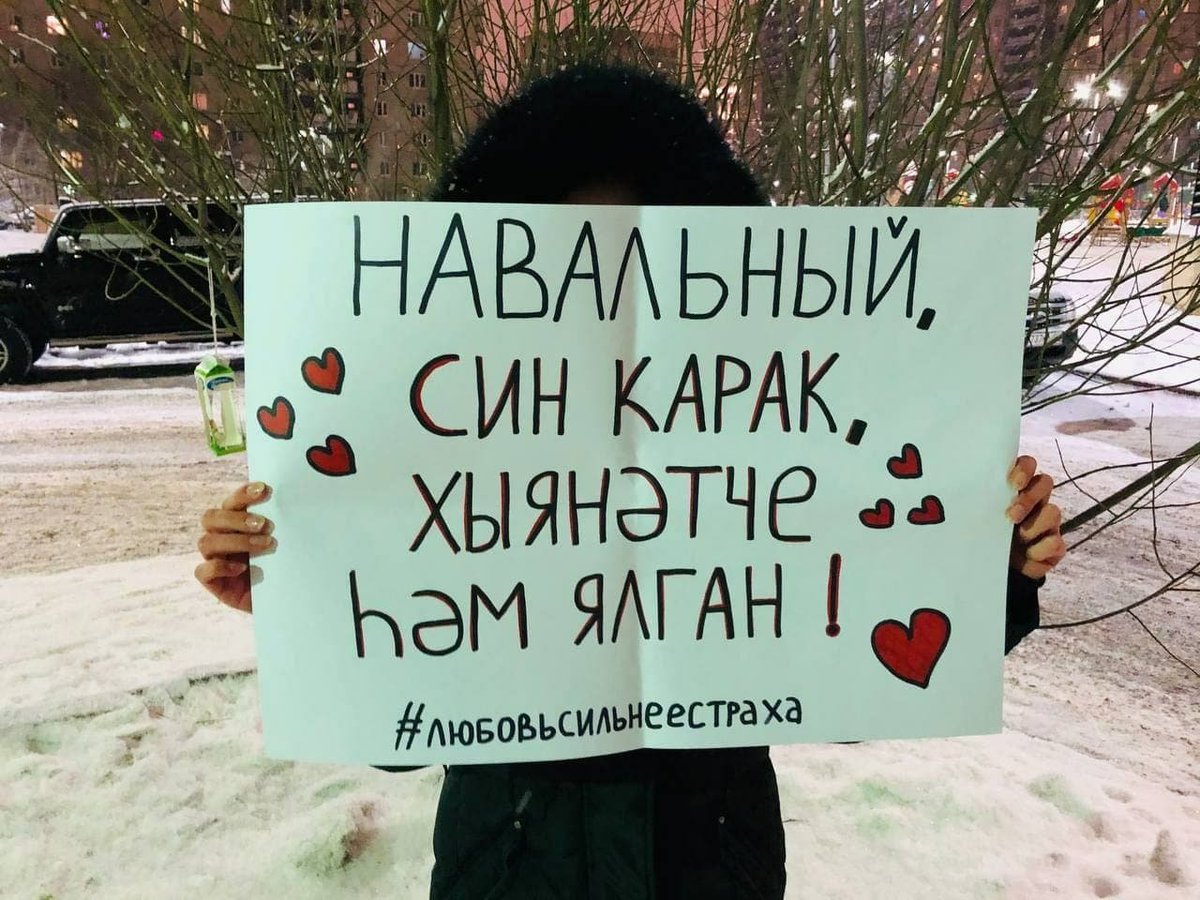 НАВАЛЬНЫЙ,
СИН КАРАК,
ХЫЯНӘТЧЕ
ҺӘМ ЯЛГАН!
#ЛЮБОВЬСИЛЬНЕЕСТРАХА